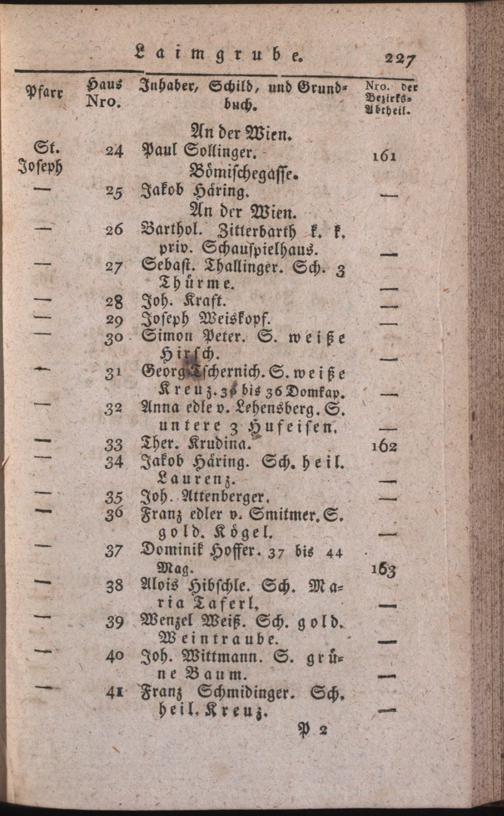 Laimgrube. 227
Pfarr Haus Inhaber, Schild, und Grund= Nro. der
Nro. buch. Bezirks=
Abtheil.
An der Wien.
St. 24 Paul Sollinger. 161
Joseph Bömischegasse.
— 25 Jakob Häring. —
An der Wien.
— 26 Barthol. Zitterbarth k. k.
priv. Schauspielhaus. —
— 27 Sebast. Thallinger. Sch. 3
Thürme. —
— 28 Joh. Kraft. —
— 29 Joseph Weiskopf. —
— 30 Simon Peter. S. weiße
Hirsch. —
— 31 Georg Tschernich. S. weiße
Kreuz. 36 bis 36 Domkap. —
— 32 Anna edle v. Lehensberg. S.
untere 3 Hufeisen. —
— 33 Ther. Krudina. 162
— 34 Jakob Häring. Sch. heil.
Laurenz. —
— 35 Joh. Attenberger. —
— 36 Franz edler v. Smitmer. S.
gold. Kögel. —
— 37 Dominik Hoffer. 37 bis 44
Mag. 163
— 38 Alois Hibschle. Sch. Ma=
ria Taferl. —
— 39 Wenzel Weiß. Sch. gold.
Weintraube. —
— 40 Joh. Wittmann. S. grü=
ne Baum. —
— 41 Franz Schmidinger. Sch.
heil. Kreuz. —
P 2